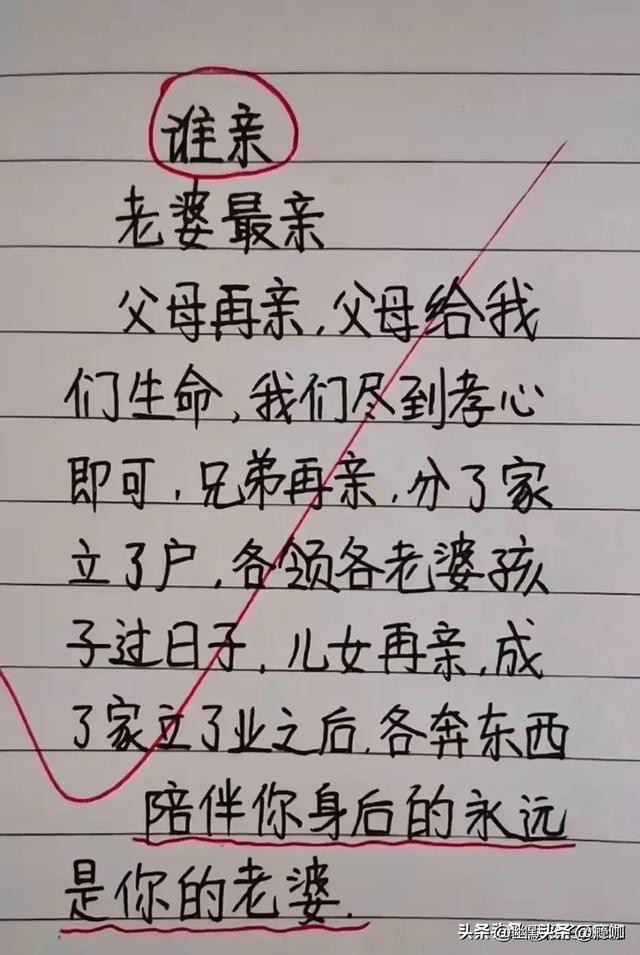 谁亲
老婆最亲
父母再亲,父母给我
们生命,我们尽到孝心
即可,兄弟再亲,分了家
立了户,各领各老婆孩
子过日子,儿女再亲,成
了家立了业之后.各奔东西
陪伴你身后的永远
是你的老婆.
头条 @